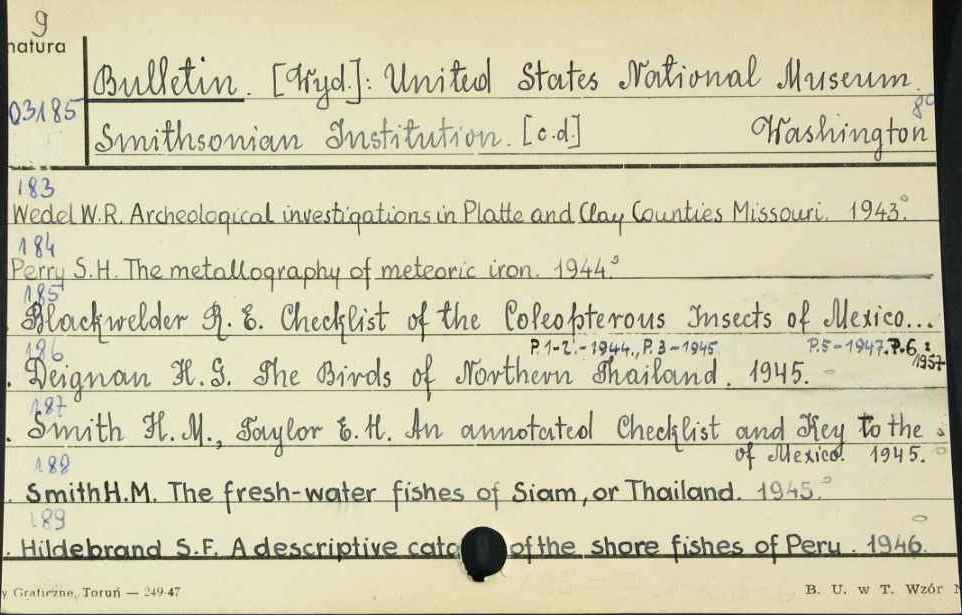 9
natura
Bulletin. [Wyd.]: United States National Museum.
03185
80
Smithsonian Institution. [c.d.] Washington
183
Wedel W.R. Archeological investigations in Platte and Clay Counties Missouri. 1943.
184
Perry S.H. The metallography of meteoric iron. 1944.
185
Blackwelder R. E. Checklist of the Coleopterous Insects of Mexico...
P. 1-2. - 1944., P. 3 - 1945 P. 5 - 1947. P. 6, 1957
186
. Deignan H. G. The Birds of Northern Thailand. 1945.
187
. Smith H. M., Taylor E. H. An annotated Checklist and Key to the
of Mexico. 1945.
188
. Smith H.M. The fresh-water fishes of Siam, or Thailand. 1945.
189
. Hildebrand S.F. A descriptive cata of the shore fishes of Peru. 1946.
y Graficzne, Toruń — 249-47
B. U. w T. Wzór